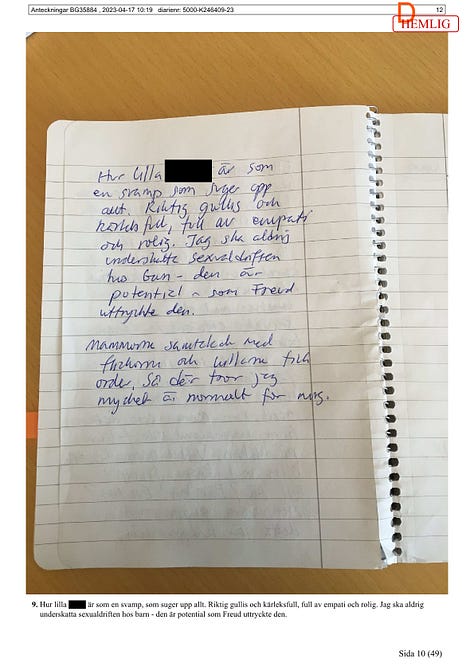 Anteckningar BG35884 , 2023-04-17 10:19 diarienr: 5000-K246409-23
12
D
HEMLIG
Hur lilla är som
en svamp som suger upp
allt. Riktig gullis och
kärleksfull, full av empati
och rolig. Jag ska aldrig
underskatta sexualdriften
hos barn - den är
potential - som Freud
uttryckte den.
Mammorna samtalade med
flickorna och
order. Så där tror jag
mycket är normalt för mig.
9. Hur lilla är som en svamp, som suger upp allt. Riktig gullis och kärleksfull, full av empati och rolig. Jag ska aldrig
underskatta sexualdriften hos barn - den är potential som Freud uttryckte den.
Sida 10 (49)